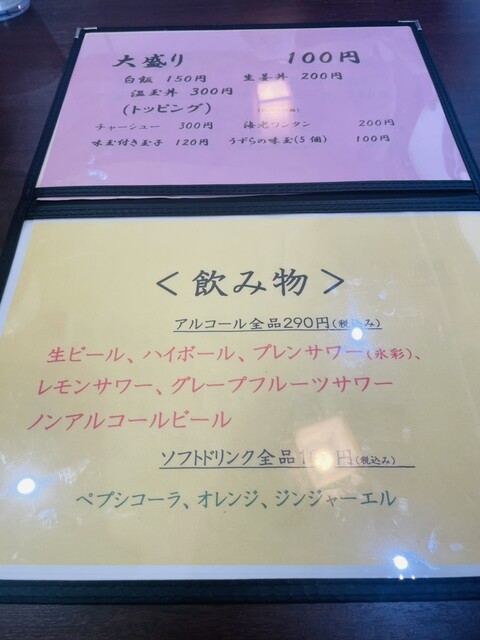 大盛り 100円
白飯 150円 生姜丼 200円
温玉丼 300円
(トッピング)
チャーシュー 300円 海老ワンタン 200円
味玉付き玉子 120円 うずらの味玉(5個) 100円
<飲み物>
アルコール全品290円(税込み)
生ビール、ハイボール、プレンサワー(氷彩)、
レモンサワー、グレープフルーツサワー
ノンアルコールビール
ソフトドリンク全品 円(税込み)
ペプシコーラ、オレンジ、ジンジャーエル